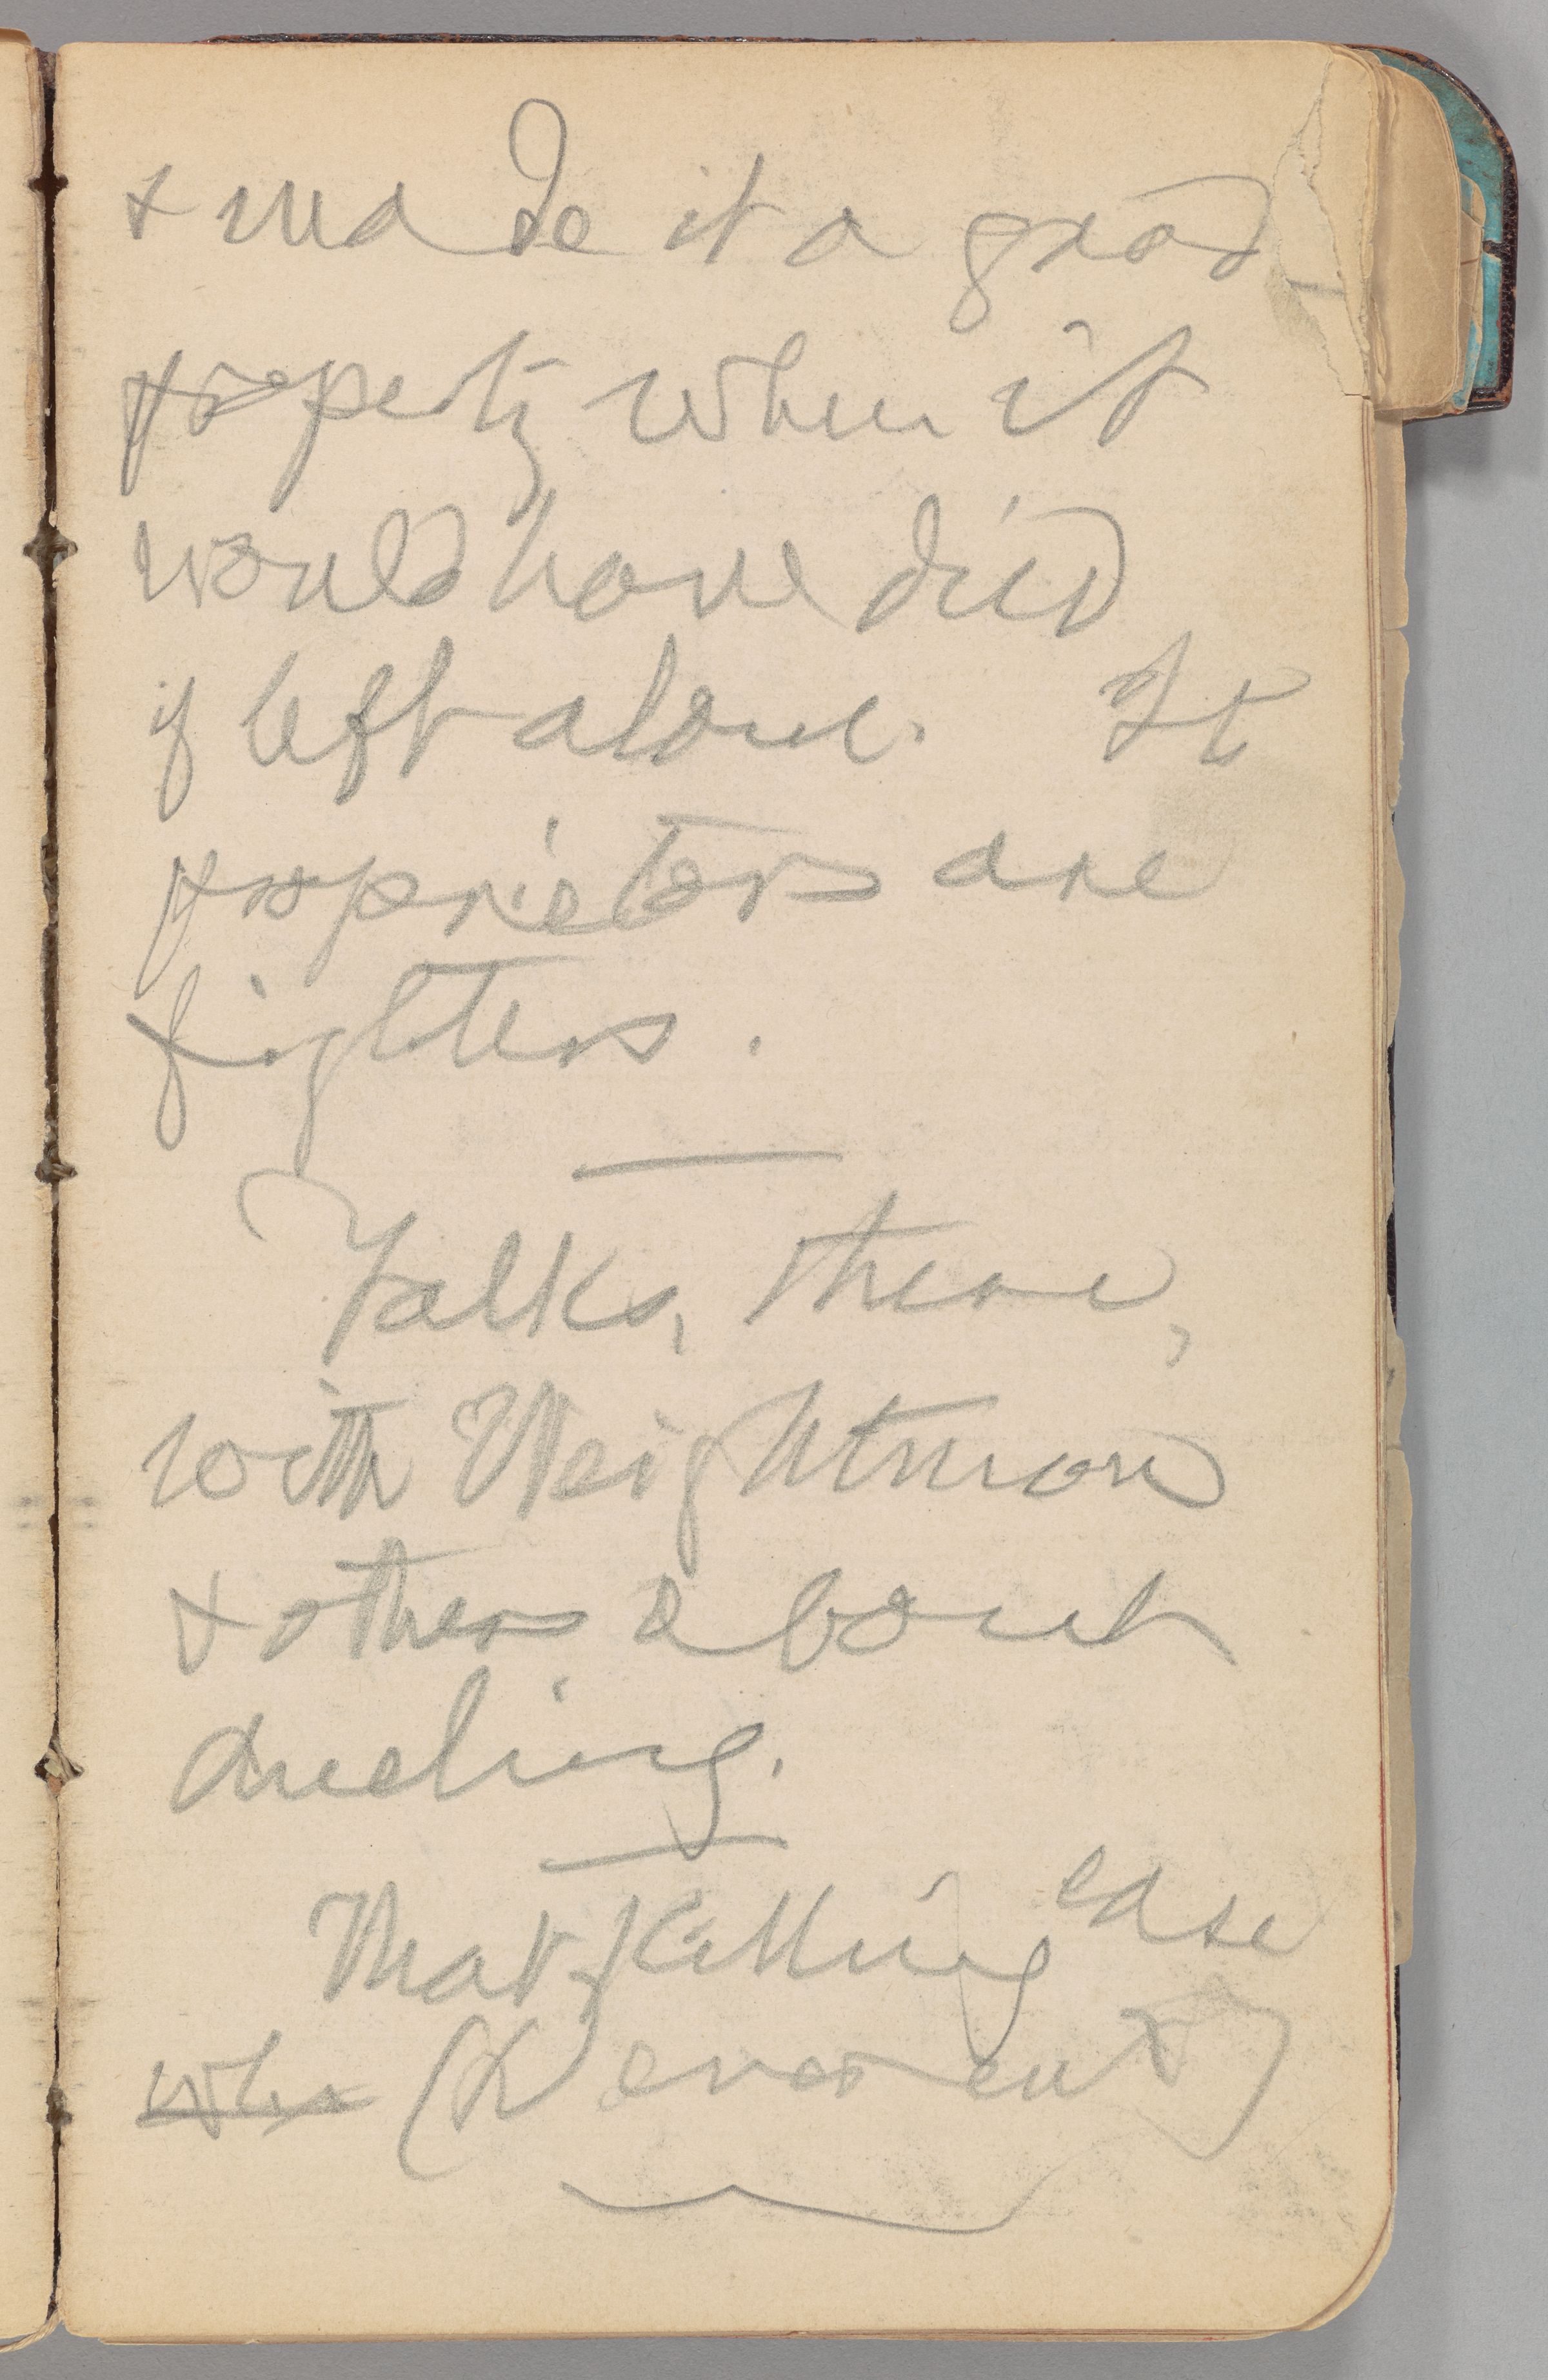 & made it a good
property when it
would have died
if left alone. Its
proprietors are
fighters.
Talks, there,
with Weightman
& others about
dueling.
That killing case
who (Devereux)